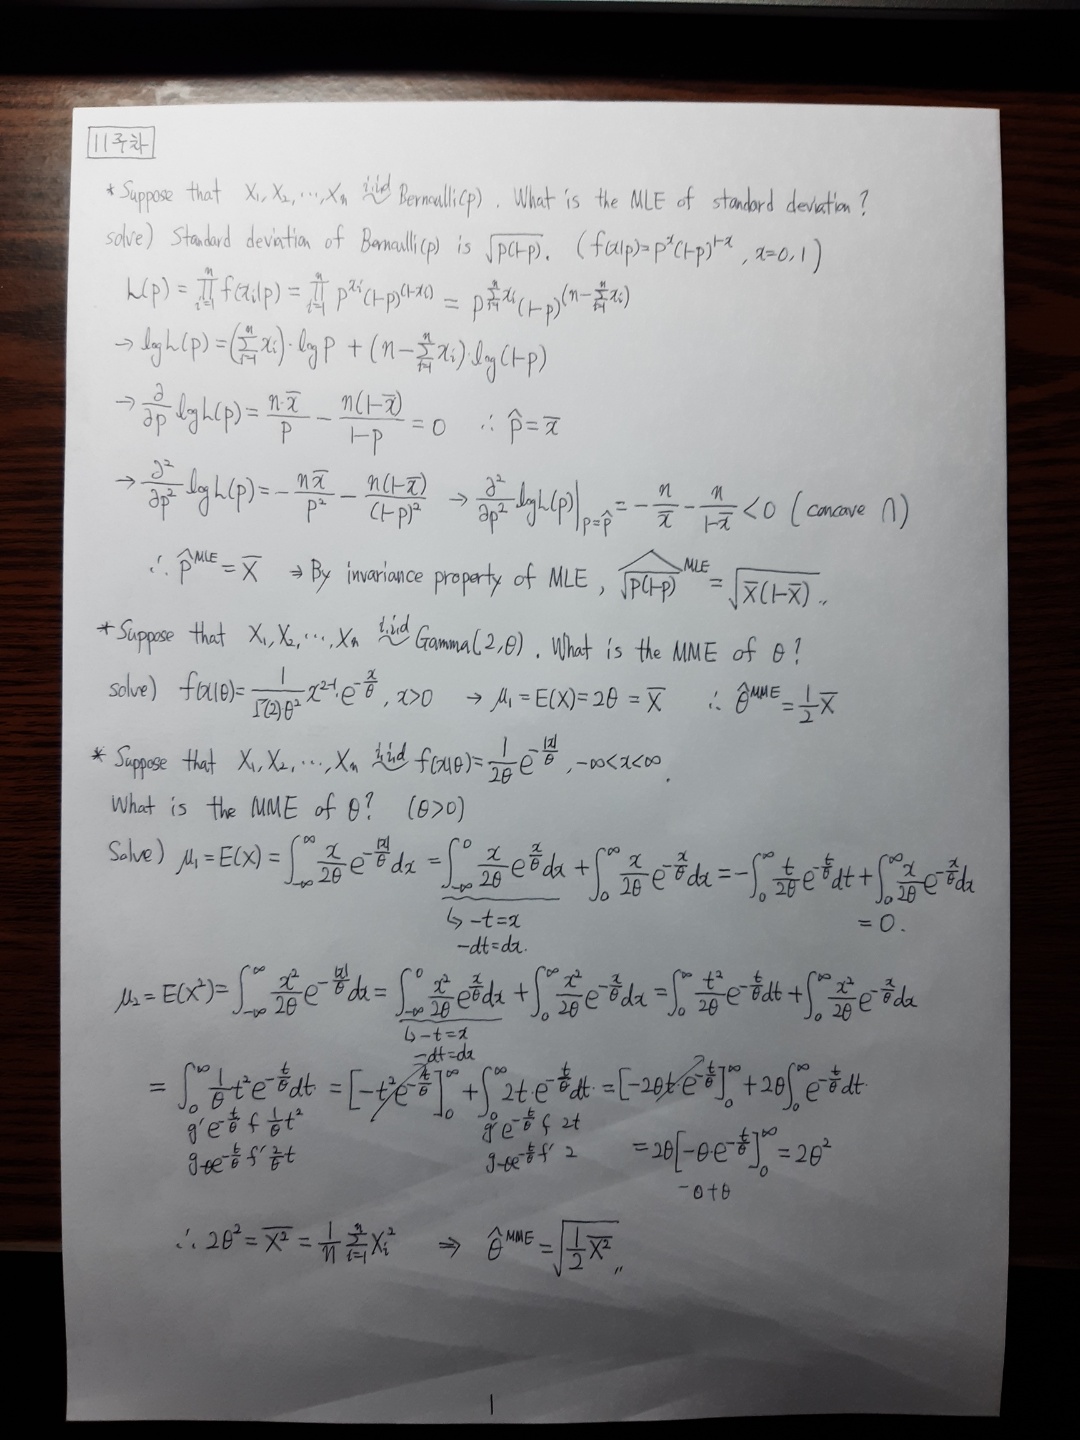 11주차
* Suppose that X₁, X₂, ⋯, Xₙ i.i.d ~ Bernoulli(p). What is the MLE of standard deviation?
solve) Standard deviation of Bernoulli(p) is √(p(1-p)). (f(x|p)=pˣ(1-p)^(1-x), x=0,1)
L(p) = ∏_{i=1}^n f(xᵢ|p) = ∏_{i=1}^n p^{xᵢ}(1-p)^{(1-xᵢ)} = p^{Σ_{i=1}^n xᵢ}(1-p)^{(n-Σ_{i=1}^n xᵢ)}
→ log L(p) = (Σ_{i=1}^n xᵢ)·log p + (n-Σ_{i=1}^n xᵢ)·log(1-p)
→ ∂/∂p log L(p) = n·x̄/p - n(1-x̄)/(1-p) = 0 ∴ p̂ = x̄
→ ∂²/∂p² log L(p) = - n x̄/p² - n(1-x̄)/(1-p)² → ∂²/∂p² log L(p)|_{p=p̂} = - n/x̄ - n/(1-x̄) < 0 (concave ∩)
∴ p̂^{MLE} = X̄ → By invariance property of MLE, \widehat{√(p(1-p))}^{MLE} = √(X̄(1-X̄)) 〃
* Suppose that X₁, X₂, ⋯, Xₙ i.i.d ~ Gamma(2, θ). What is the MME of θ?
solve) f(x|θ) = 1/(Γ(2)θ²) x^{2-1}·e^{-x/θ}, x>0 → μ₁ = E(X) = 2θ = X̄ ∴ θ̂^{MME} = 1/2 X̄
* Suppose that X₁, X₂, ⋯, Xₙ i.i.d ~ f(x|θ) = 1/(2θ) e^{-|x|/θ}, -∞<x<∞.
What is the MME of θ? (θ>0)
Solve) μ₁ = E(X) = ∫_{-∞}^{∞} x/(2θ) e^{-|x|/θ} dx = ∫_{-∞}^{0} x/(2θ) e^{x/θ} dx + ∫_0^∞ x/(2θ) e^{-x/θ} dx = -∫_0^∞ t/(2θ) e^{-t/θ} dt + ∫_0^∞ x/(2θ) e^{-x/θ} dx
↳ -t=x = 0.
-dt=dx.
μ₂ = E(X²) = ∫_{-∞}^{∞} x²/(2θ) e^{-|x|/θ} dx = ∫_{-∞}^{0} x²/(2θ) e^{x/θ} dx + ∫_0^∞ x²/(2θ) e^{-x/θ} dx = ∫_0^∞ t²/(2θ) e^{-t/θ} dt + ∫_0^∞ x²/(2θ) e^{-x/θ} dx
↳ -t=x
-dt=dx
= ∫_0^∞ 1/θ t² e^{-t/θ} dt = [-t² e^{-t/θ}]_0^∞ + ∫_0^∞ 2t·e^{-t/θ} dt = [-2θt·e^{-t/θ}]_0^∞ + 2θ∫_0^∞ e^{-t/θ} dt
g' e^{-t/θ} f 1/θ t² g' e^{-t/θ} f 2t
g -θe^{-t/θ} f' 2/θ t g -θe^{-t/θ} f' 2 = 2θ[-θ·e^{-t/θ}]_0^∞ = 2θ²
-0+θ
∴ 2θ² = \overline{X²} = 1/n Σ_{i=1}^n Xᵢ² ⇒ θ̂^{MME} = √(1/2 \overline{X²}) 〃
1